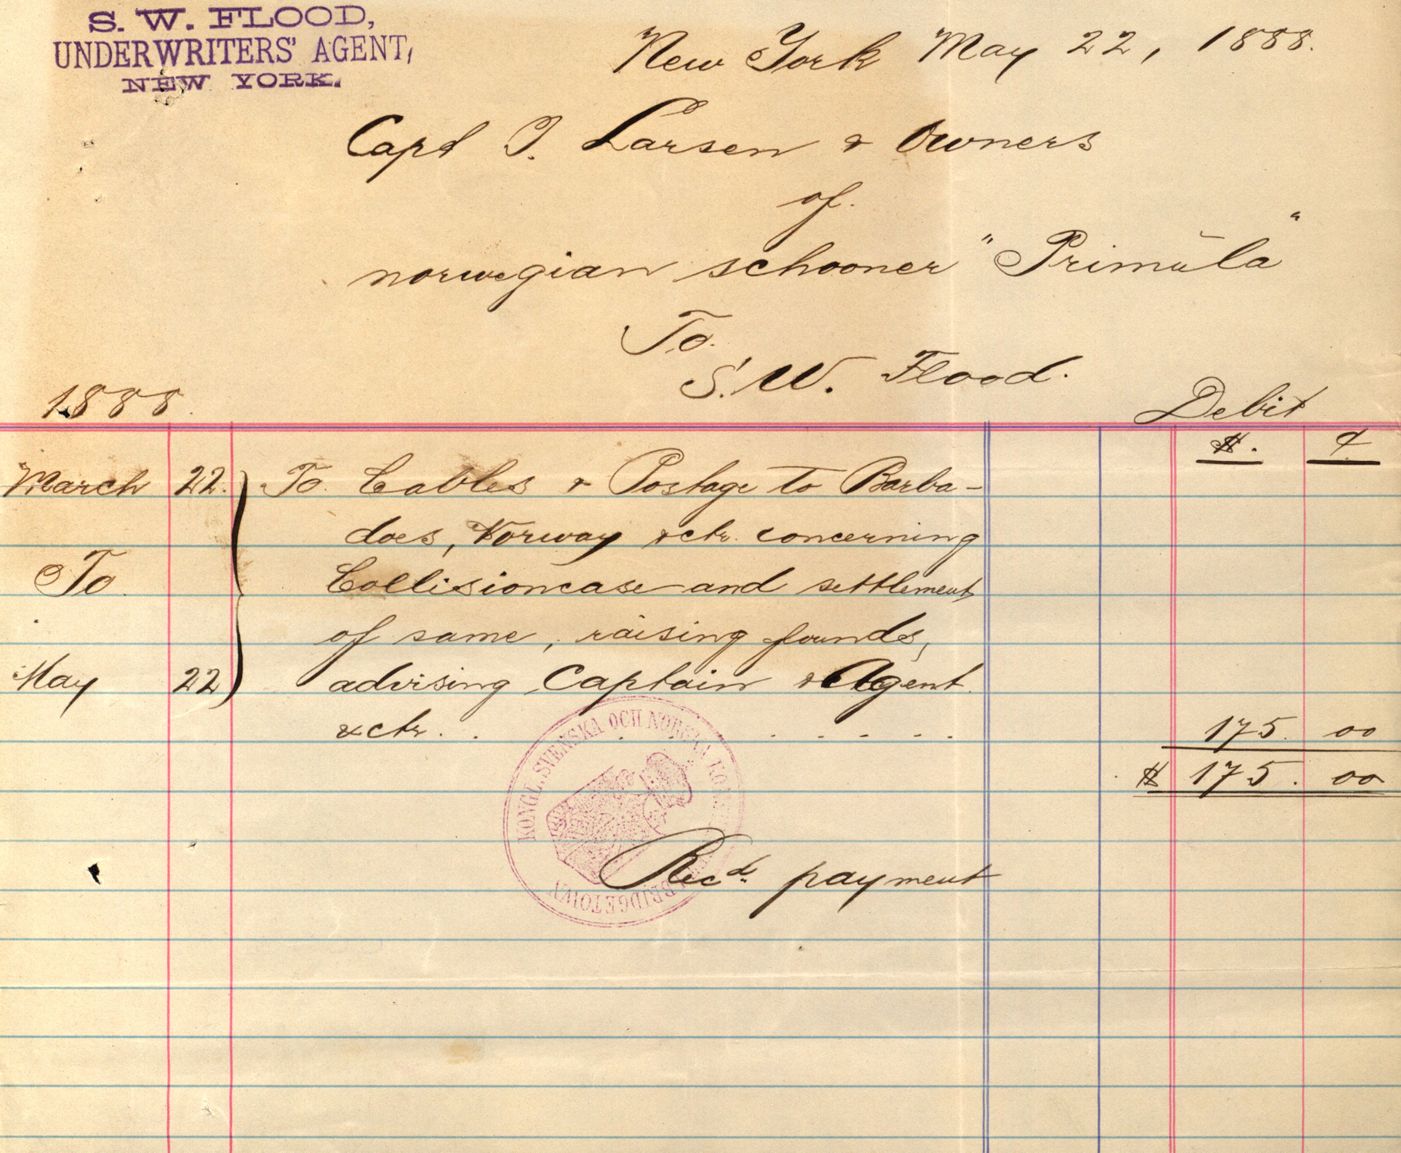 S. W. FLOOD,
UNDERWRITERS' AGENT,
NEW YORK.
New York May 22, 1888.
Capt J. Larsen & Owners
of.
norwegian schooner "Primula"
To.
S. W. Flood.
1888.
Debit
$. ¢
March 22. To Cables & Postage to Barba-
does, Norway &ctr. concerning
To. Collisioncase and settlement
of same, raising founds,
May 22 advising Captain & Agent.
&ctr. . . . . . . . 175. 00
$ 175. 00
KONGL. SVENSKA OCH NORSKA
BRIDGETOWN
Recd. payment